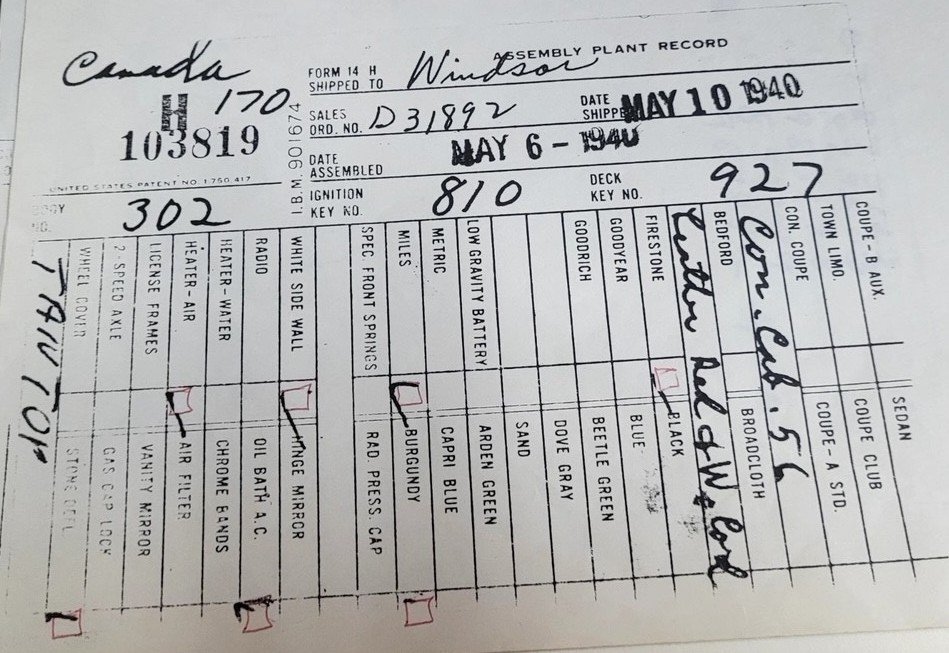 ASSEMBLY PLANT RECORD
Canada
FORM 14 H
SHIPPED TO Windsor
H 170
103819
I.B.M. 901674
SALES
ORD. NO. D31892
DATE
SHIPPED MAY 10 1940
DATE
ASSEMBLED MAY 6 - 1940
UNITED STATES PATENT NO. 1750417
BODY
NO. 302
IGNITION
KEY NO. 810
DECK
KEY NO. 927
COUPE-B AUX.
SEDAN
TOWN LIMO.
COUPE CLUB
CON. COUPE
COUPE-A STD.
Con. Cab. 56
BEDFORD
BROADCLOTH
Leather Red & W. Cord
FIRESTONE
BLACK
GOODYEAR
BLUE
GOODRICH
BEETLE GREEN
DOVE GRAY
SAND
LOW GRAVITY BATTERY
ARDEN GREEN
METRIC
CAPRI BLUE
MILES
BURGUNDY
SPEC FRONT SPRINGS
RAD. PRESS. CAP
WHITE SIDE WALL
HINGE MIRROR
RADIO
OIL BATH A.C.
HEATER-WATER
CHROME BANDS
HEATER-AIR
AIR FILTER
LICENSE FRAMES
VANITY MIRROR
2-SPEED AXLE
GAS CAP LOCK
WHEEL COVER
TAN TOP